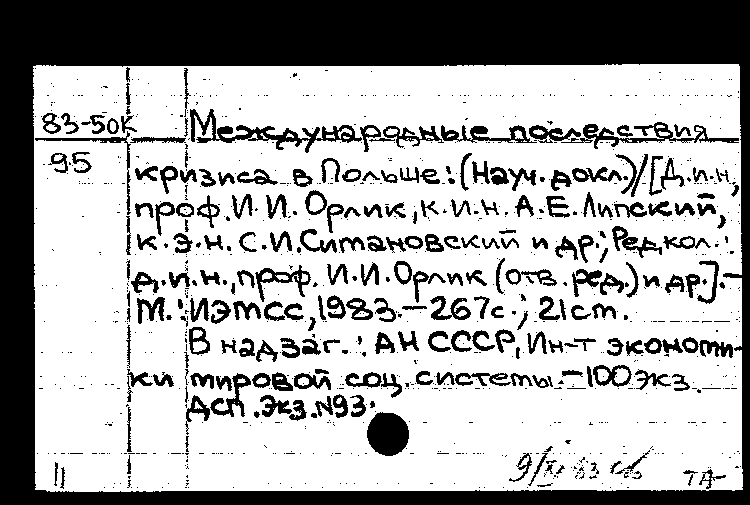 83-50К Международные последствия
95 кризиса в Польше: (Науч. докл.)/[Д.и.н,
проф. И.И. Орлик, к.и.н. А.Е. Липский,
к.э.н. С.И. Ситановский и др.; Редкол.:
д.и.н., проф. И.И. Орлик (отв. ред.) и др.].-
М.: ИЭМСС, 1983.-267с.; 21см.
В надзаг.: АН СССР, Ин-т экономи-
ки мировой соц. системы.-100 экз.
ДСП. Экз. N93.
11 9/XI 83